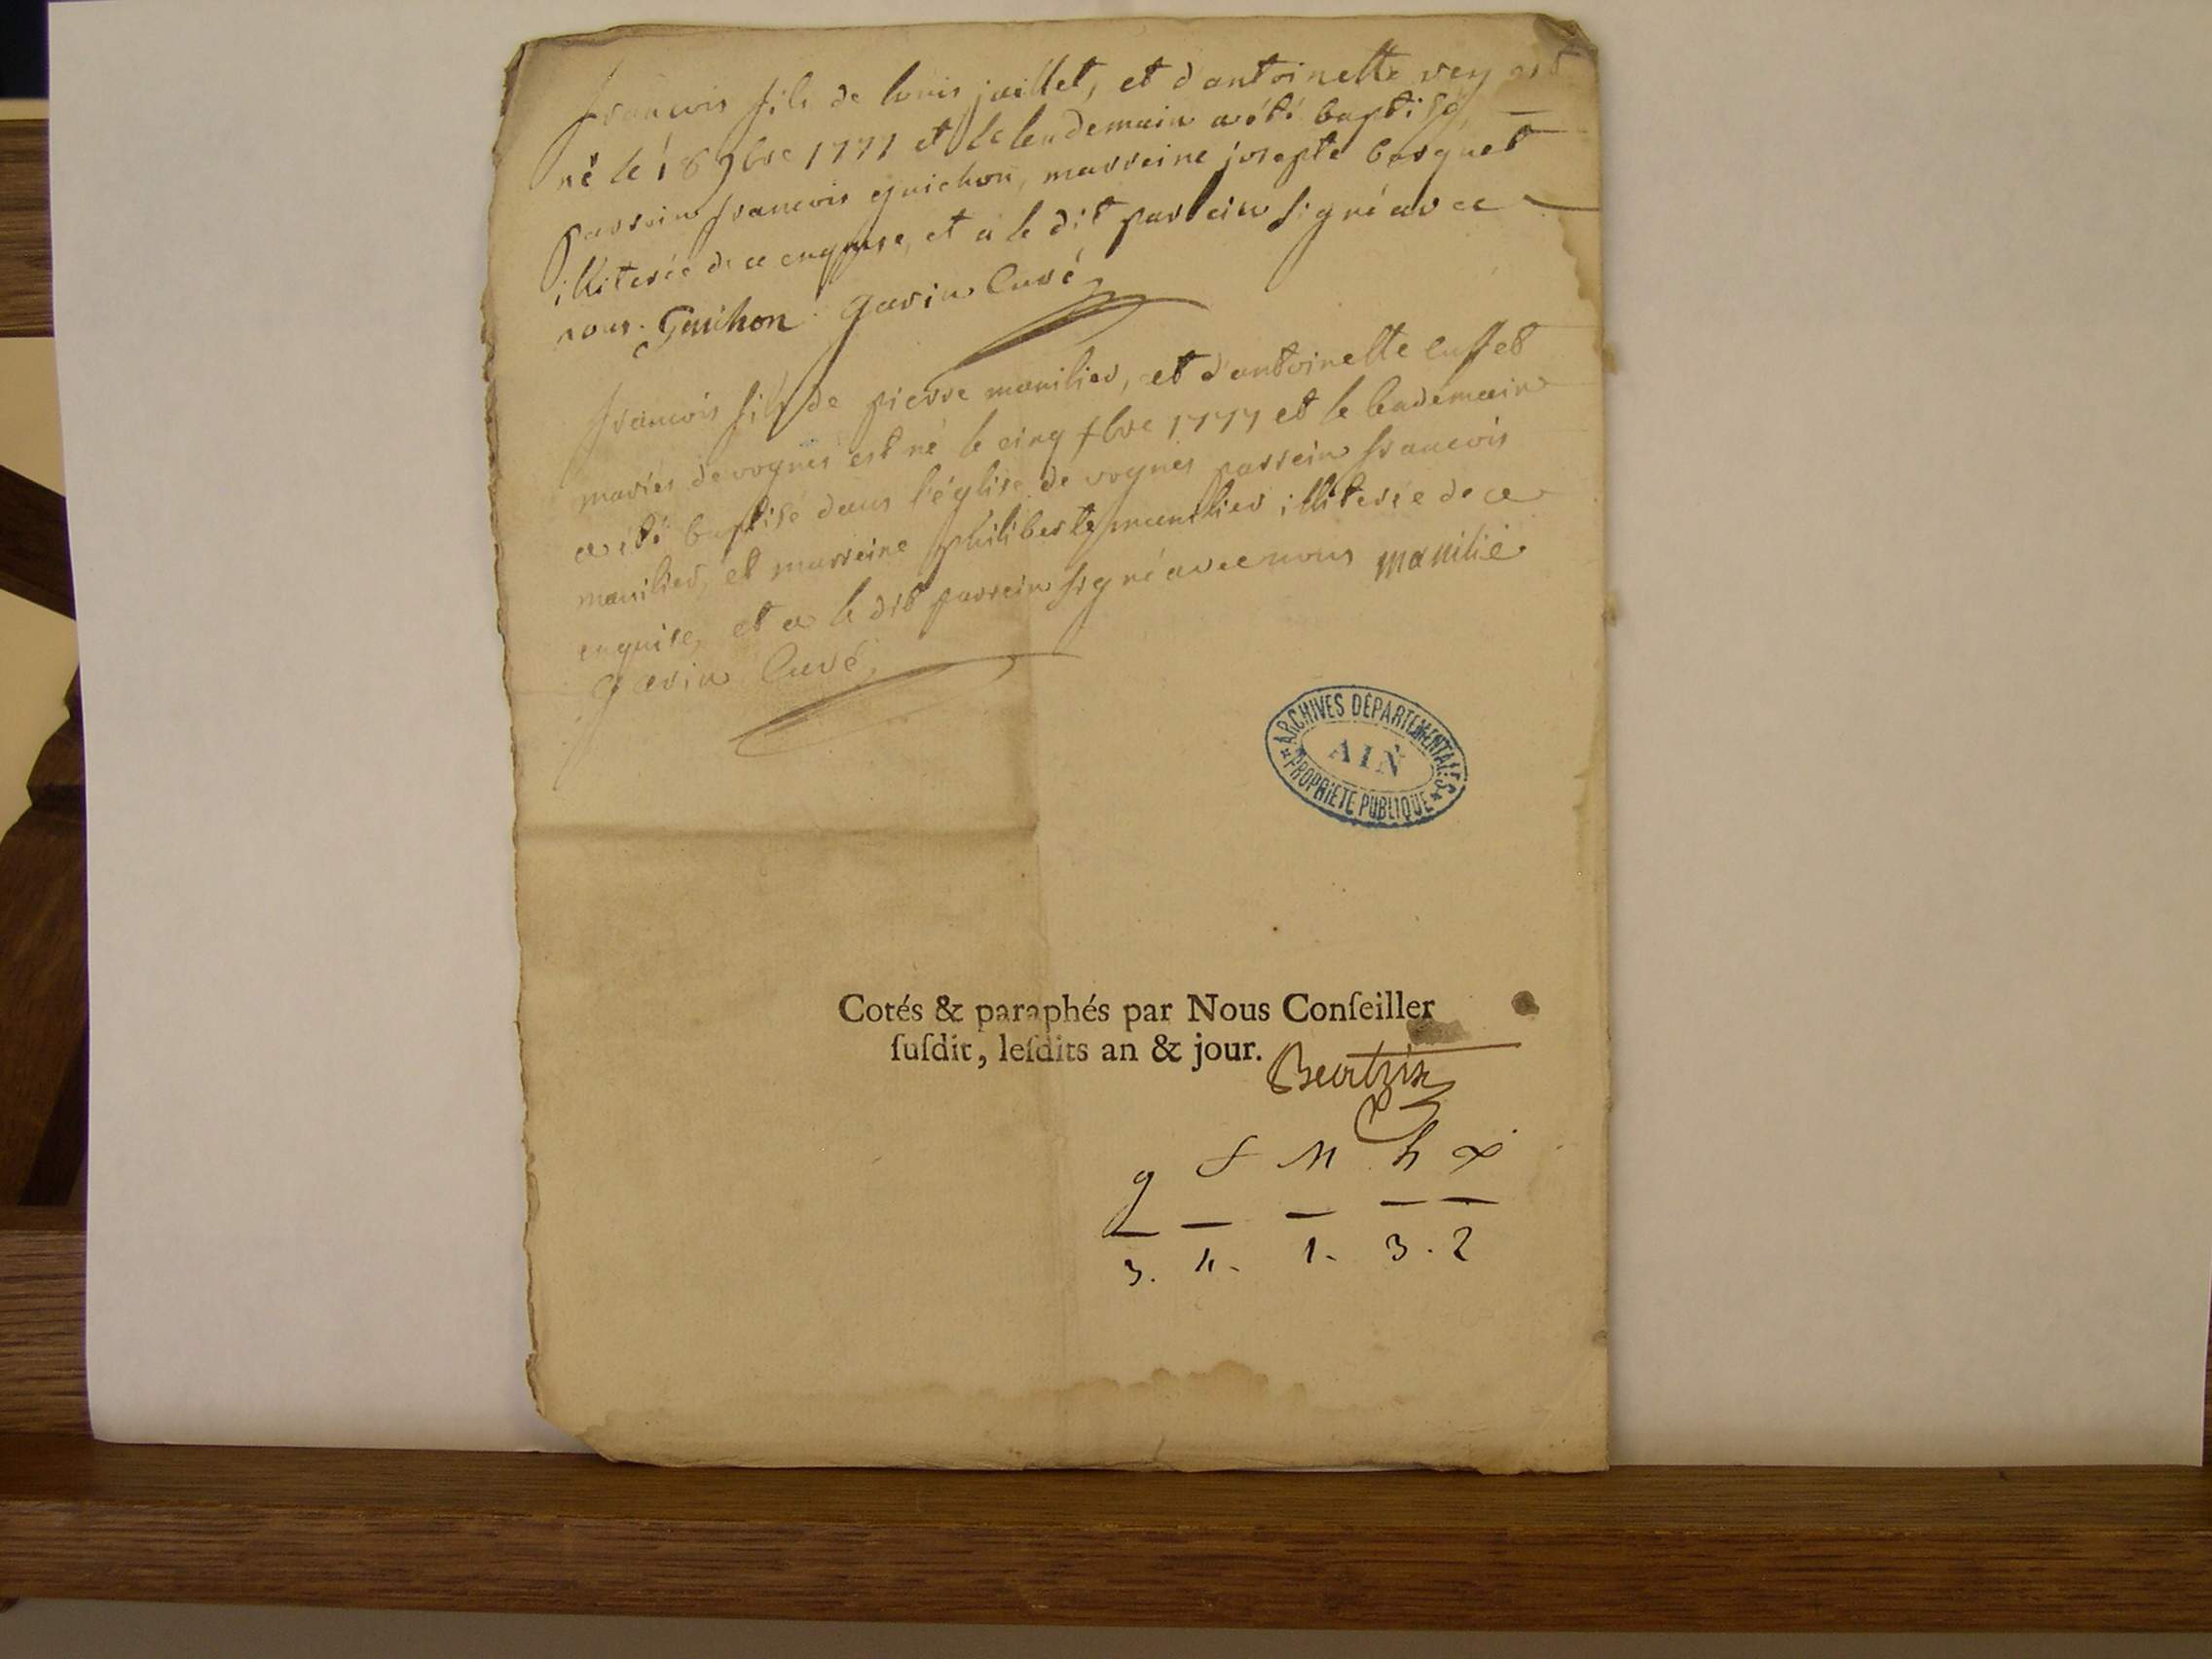 francois fils de louis juillet, et d'antoinette rey est
né le 18 9bre 1777 et le lendemain a été baptisé,
parrein francois guichon, marreine josepte borguet
illiterée de ce enquise, et a le dit parrein signé avec
nous. Guichon Gavin Curé
francois fils de pierre manilier, et d'antoinette cusset
mariés de vognes est né le cinq xbre 1777 et le lendemain
a été baptisé dans l'église de vognes parrein francois
manilier, et marreine philiberte manilier illiterée de ce
enquise, et a le dit parrein signé avec nous manilié
gavin Curé
ARCHIVES DÉPARTEMENTALES
AIN
PROPRIÉTÉ PUBLIQUE
Cotés & paraphés par Nous Conſeiller
ſuſdit, leſdits an & jour.
Beatrix
g f M h x
3. 11. 1. 3. 2